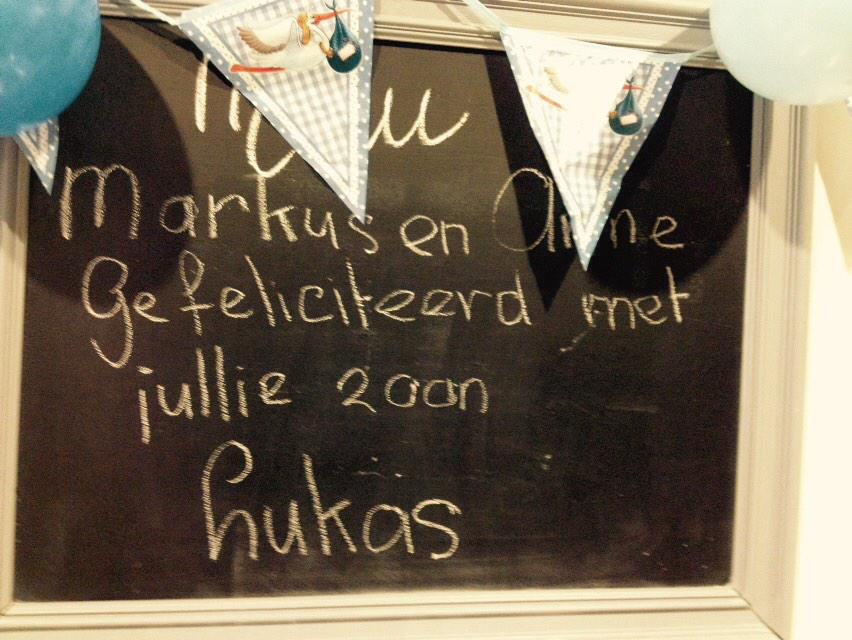 Markus en Anne
Gefeliciteerd met
jullie zoon
Lukas